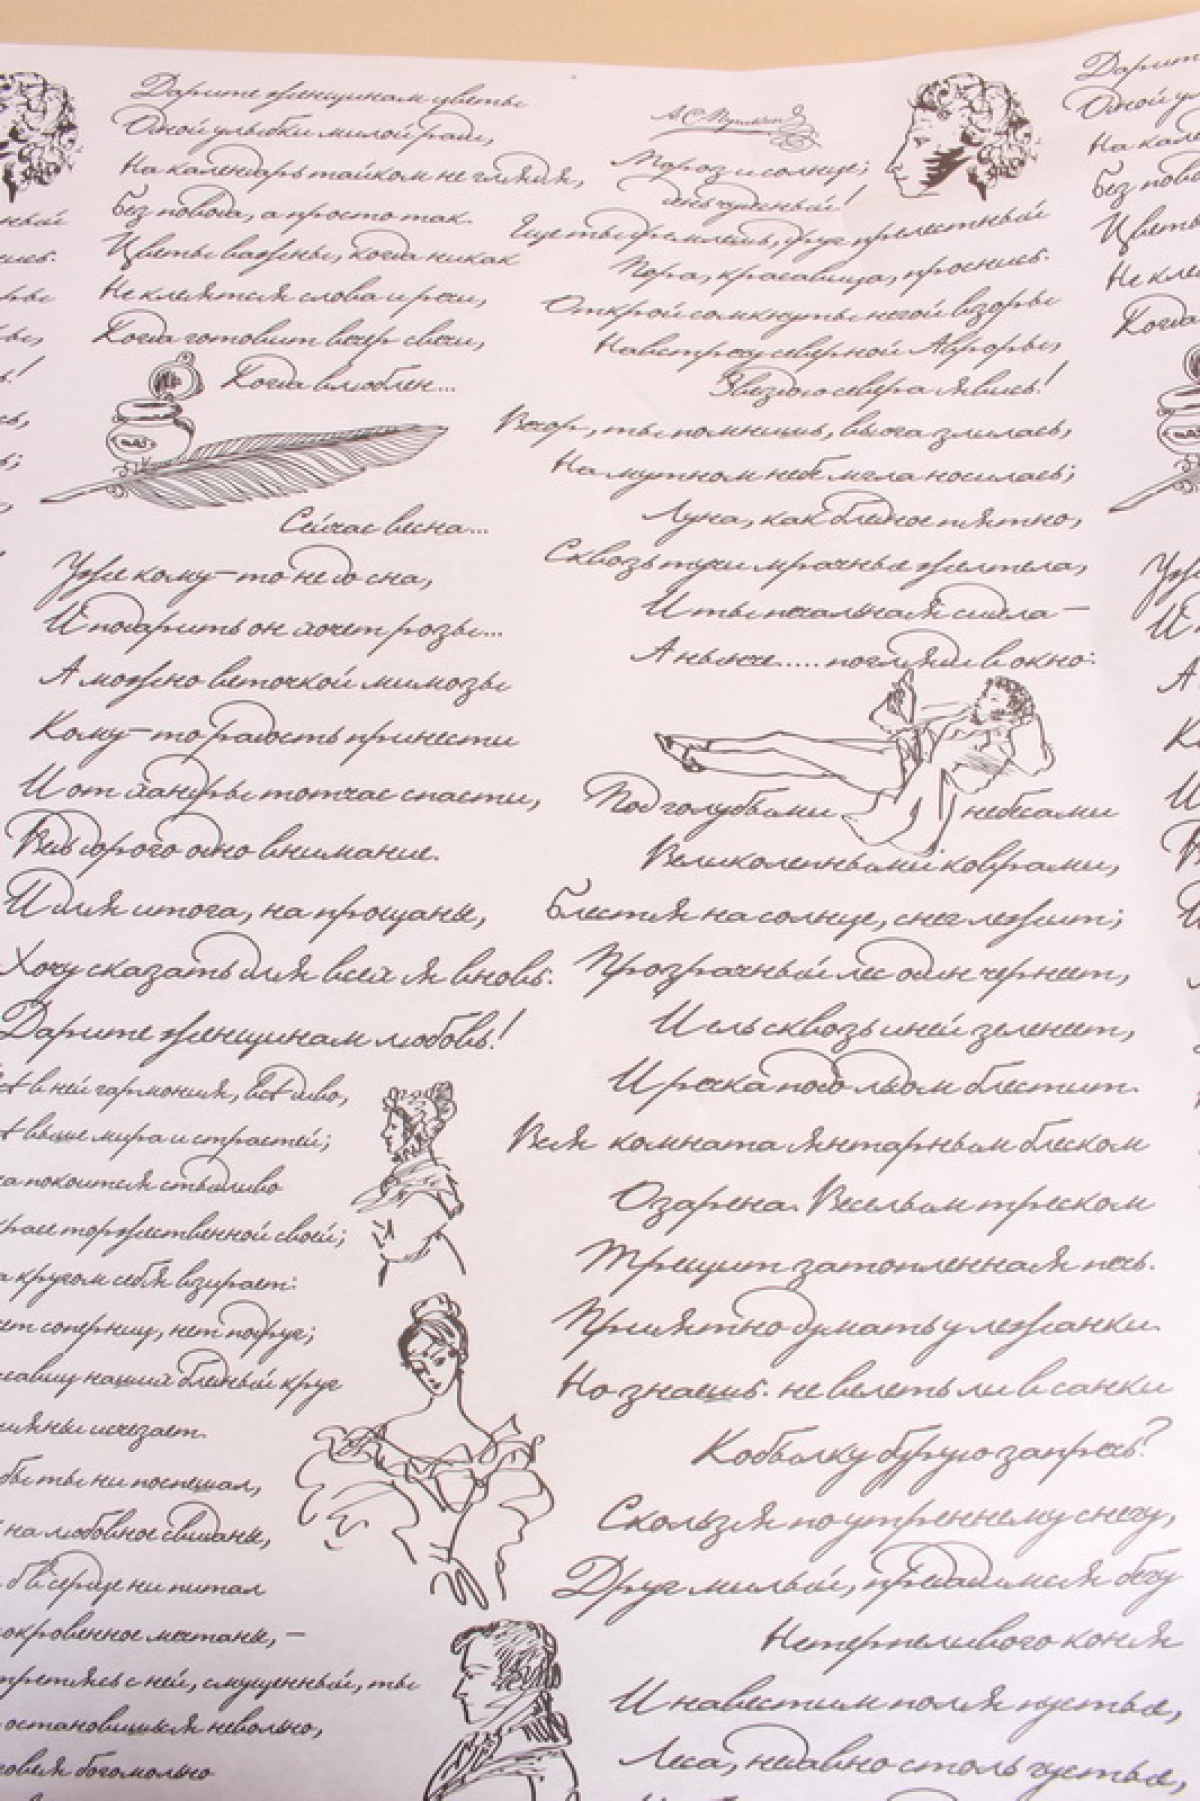 Дарите женщинам цветы
Одной улыбки милой ради,
На календарь тайком не глядя,
Без повода, а просто так.
Цветы важны, когда никак
Не клеятся слова и речи,
Когда готовит вечер свечи,
Когда влюблен...
Сейчас весна...
Уже кому-то не до сна,
И подарить он хочет розы...
А можно веточкой мимозы
Кому-то радость принести
И от хандры тотчас спасти,
Ведь дорого одно внимание.
И для итога, на прощанье,
Хочу сказать для всех я вновь:
Дарите женщинам любовь!
в ней гармония, всё диво,
выше мира и страстей;
покоится стыдливо
торжественной своей;
кругом себя взирает:
соперниц, нет подруг;
наших бледный круг
исчезает.
бы ты ни поспешал,
на любовное свиданье,
б в сердце ни питал
мечтанье, –
с ней, смущенный, ты
остановишься невольно,
богомольно
А.С. Пушкин
Мороз и солнце;
день чудесный!
Еще ты дремлешь, друг прелестный
Пора, красавица, проснись:
Открой сомкнуты негой взоры
Навстречу северной Авроры,
Звездою севера явись!
Вечор, ты помнишь, вьюга злилась,
На мутном небе мгла носилась;
Луна, как бледное пятно,
Сквозь тучи мрачные желтела,
И ты печальная сидела –
А нынче..... погляди в окно:
Под голубыми небесами
Великолепными коврами,
Блестя на солнце, снег лежит;
Прозрачный лес один чернеет,
И ель сквозь иней зеленеет,
И речка подо льдом блестит.
Вся комната янтарным блеском
Озарена. Веселым треском
Трещит затопленная печь.
Приятно думать у лежанки.
Но знаешь: не велеть ли в санки
Кобылку бурую запречь?
Скользя по утреннему снегу,
Друг милый, предадимся бегу
Нетерпеливого коня
И навестим поля пустые,
Леса, недавно столь густые,